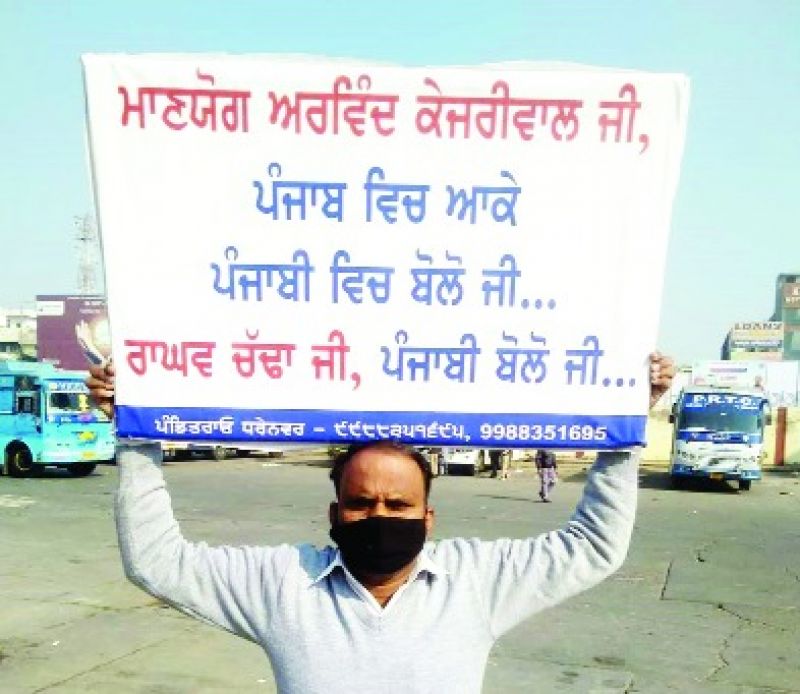 ਮਾਣਯੋਗ ਅਰਵਿੰਦ ਕੇਜਰੀਵਾਲ ਜੀ,
ਪੰਜਾਬ ਵਿਚ ਆਕੇ
ਪੰਜਾਬੀ ਵਿਚ ਬੋਲੋ ਜੀ...
ਰਾਘਵ ਚੱਢਾ ਜੀ, ਪੰਜਾਬੀ ਬੋਲੋ ਜੀ...
ਪੰਡਿਤਰਾਓ ਧਰੇਨਵਰ - ੯੯੮੮੩੫੧੬੯੫, 9988351695
LOANZ
P.R.T.C.